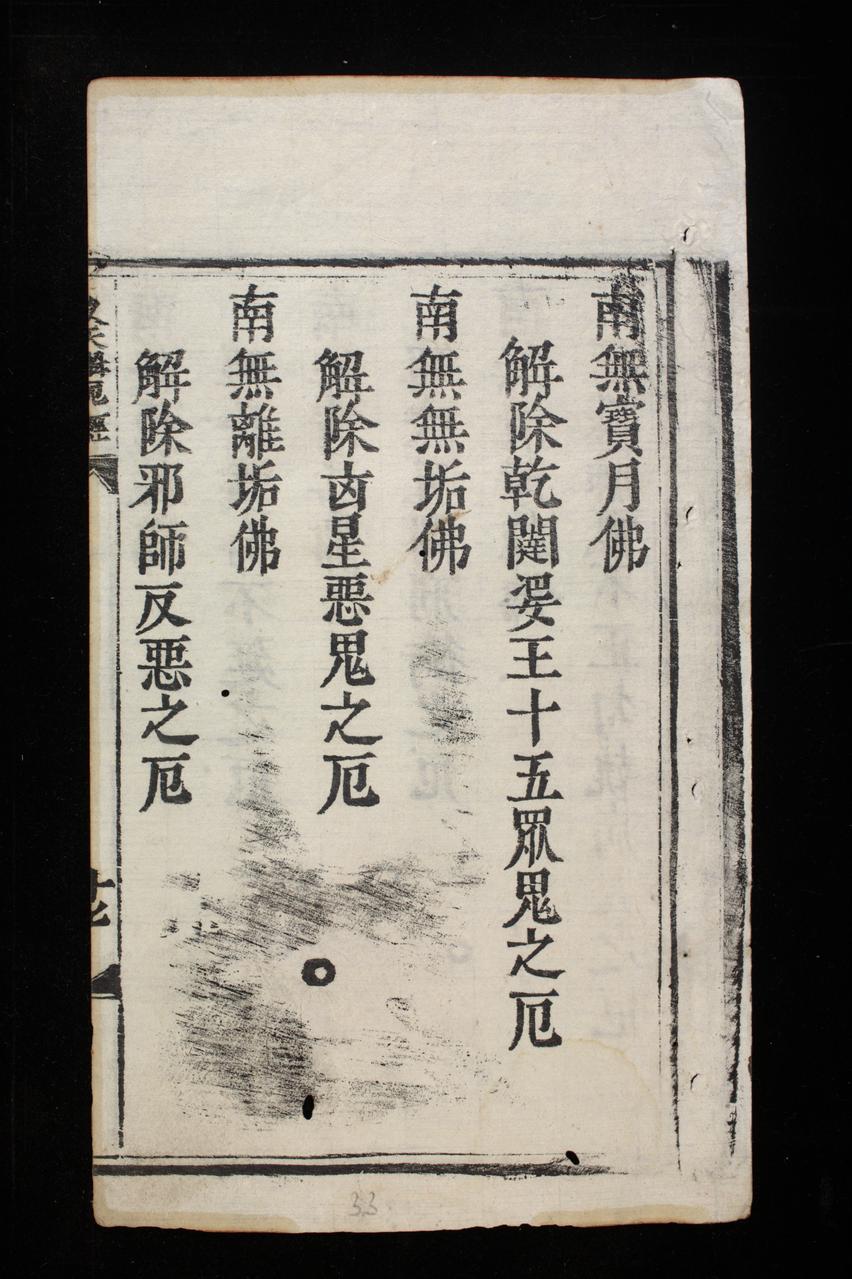 南無寶月佛
解除乾闥婆王十五眾鬼之厄
南無無垢佛
解除凶星惡鬼之厄
南無離垢佛
解除邪師反惡之厄
33